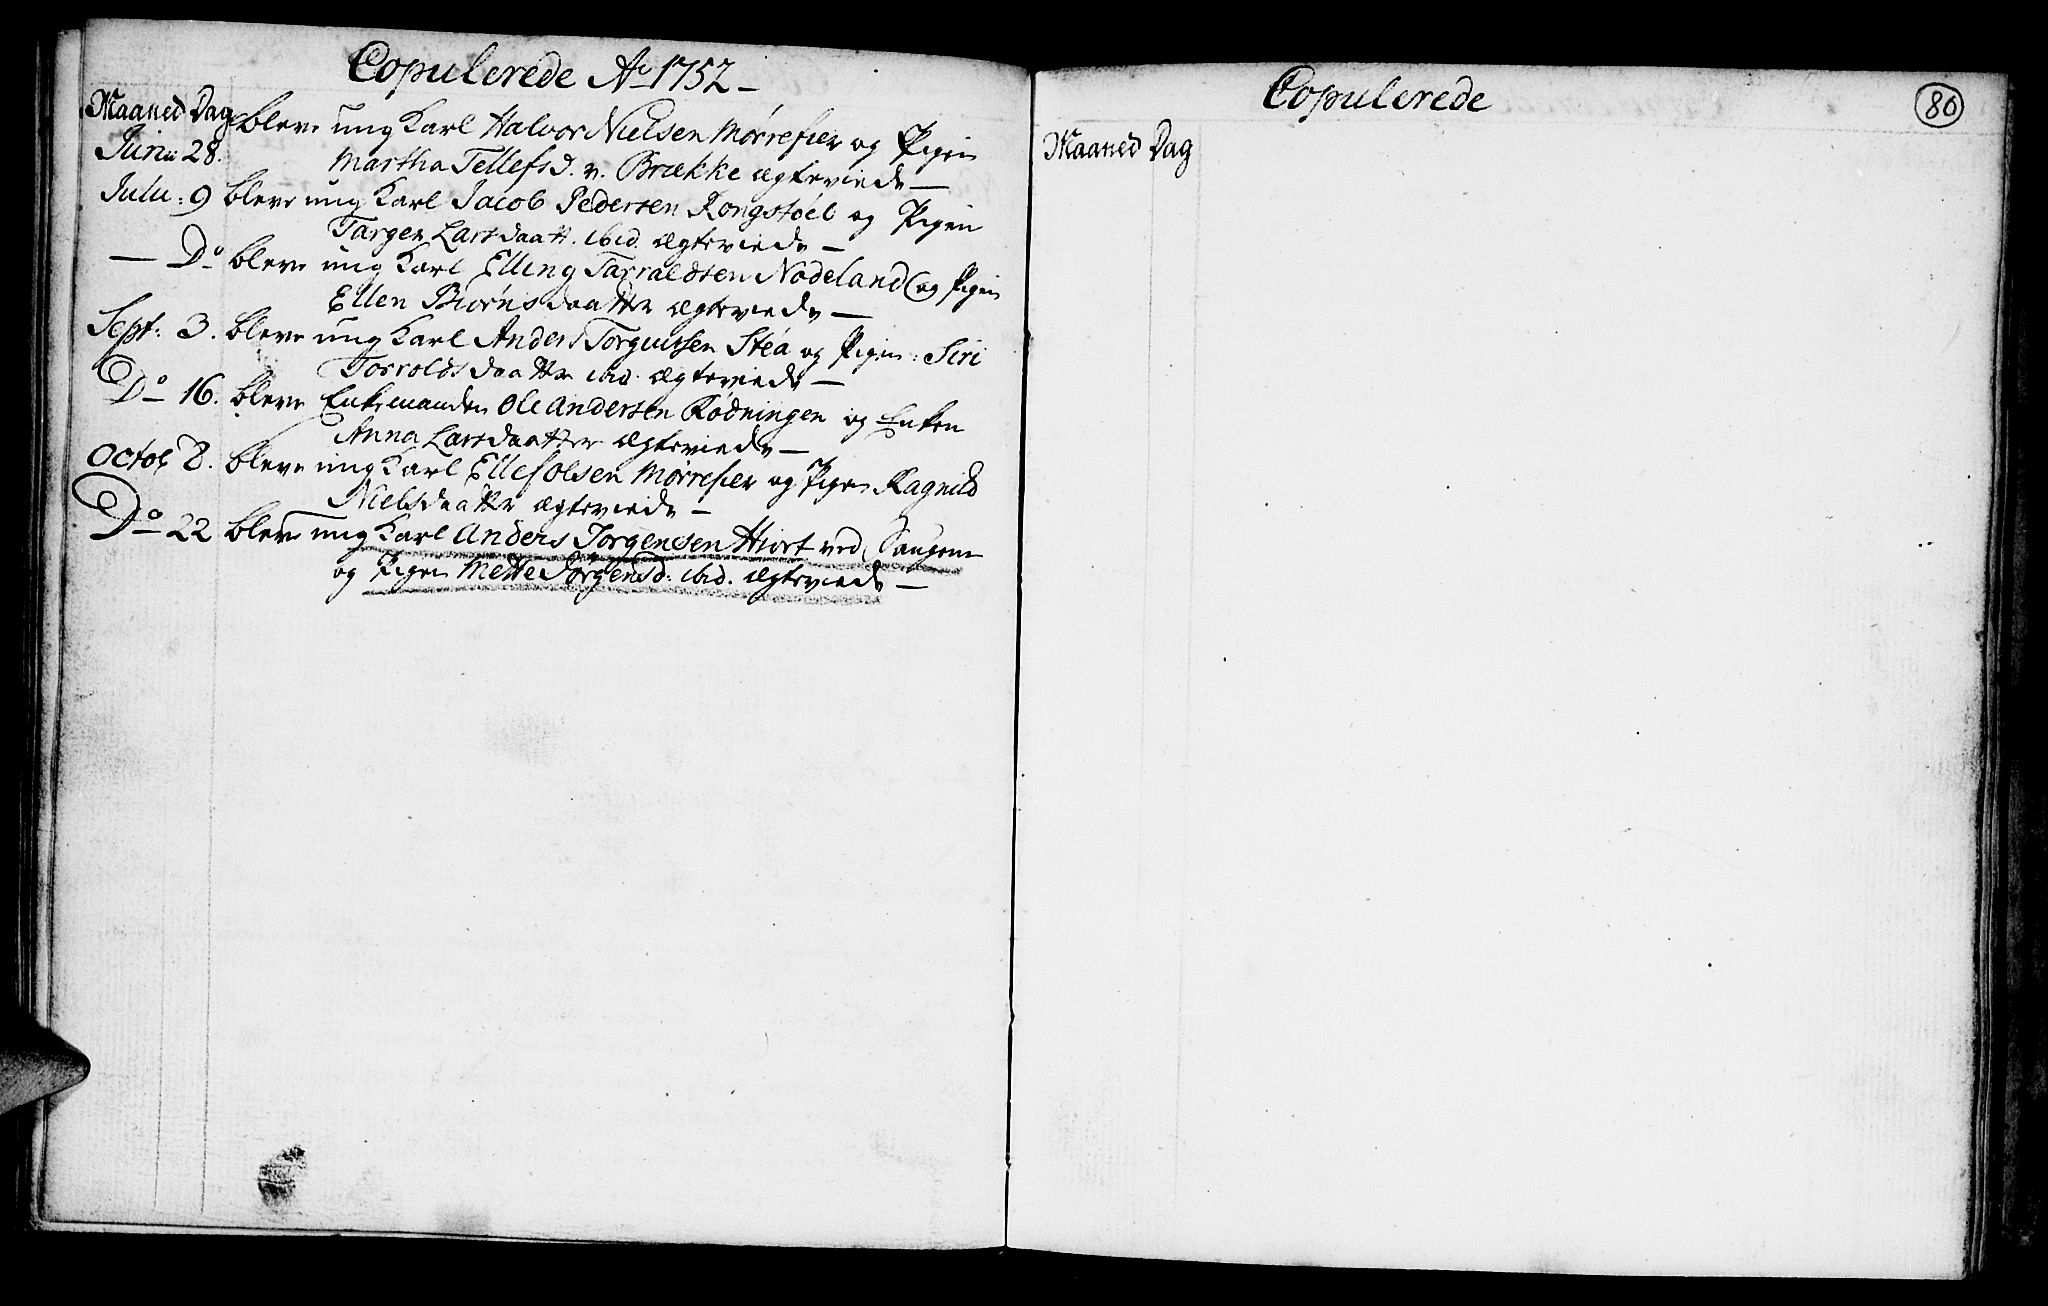 Copulerede Ao 1752
Maaned Dag
Junii 28. bleve ung Karl Halvor Nielsen Mørrefier og Pigen
Martha Tellefsd. v. Brække ægteviede
Julii: 9 bleve ung Karl Jacob Pedersen Rongstøel og Pigen
Targer Larsdaatt. ibid. ægteviede
— Do bleve ung Karl Elling Tarraldsen Nodeland og Pigen
Ellen Biørnsdaatter ægteviede
Sept: 3. bleve ung Karl Anders Torguissen Stea og Pigen: Siri
Torroldsdaatter ibid. ægteviede
Do 16. bleve Enkemanden Ole Andersen Rødningen og Enken
Anna Larsdaatter ægteviede
Octob 8. bleve ung Karl Ellef Olsen Mørrefier og Pigen Ragnild
Nielsdaatter ægteviede
Do 22 bleve ung Karl Anders Jørgensen Hiort ved Saugene
og Pigen Mette Jørgensd: ibid. ægteviede
Copulerede
80
Maaned Dag